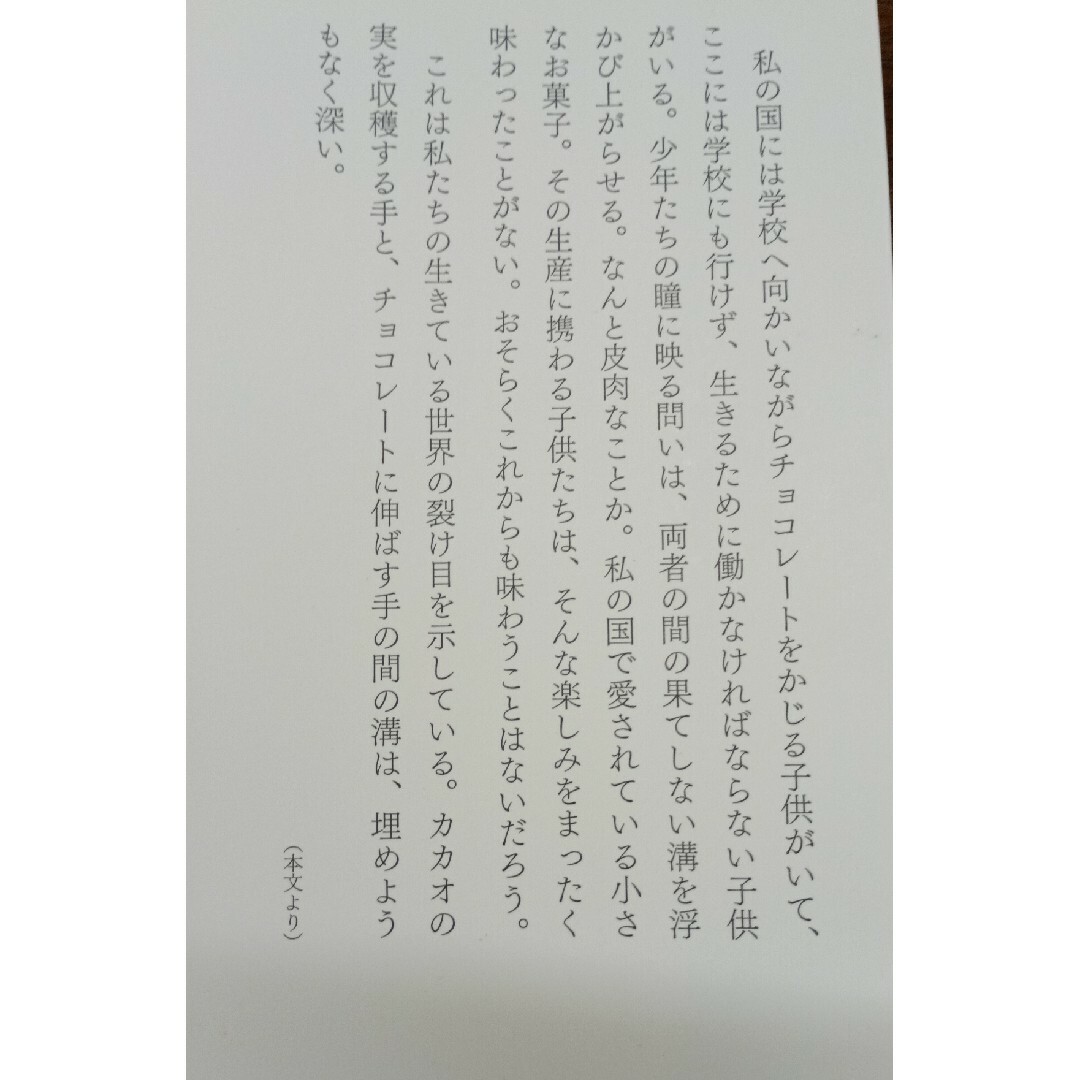 私の国には学校へ向かいながらチョコレートをかじる子供がいて、
ここには学校にも行けず、生きるために働かなければならない子供
がいる。少年たちの瞳に映る問いは、両者の間の果てしない溝を浮
かび上がらせる。なんと皮肉なことか。私の国で愛されている小さ
なお菓子。その生産に携わる子供たちは、そんな楽しみをまったく
味わったことがない。おそらくこれからも味わうことはないだろう。
これは私たちの生きている世界の裂け目を示している。カカオの
実を収穫する手と、チョコレートに伸ばす手の間の溝は、埋めよう
もなく深い。
（本文より）